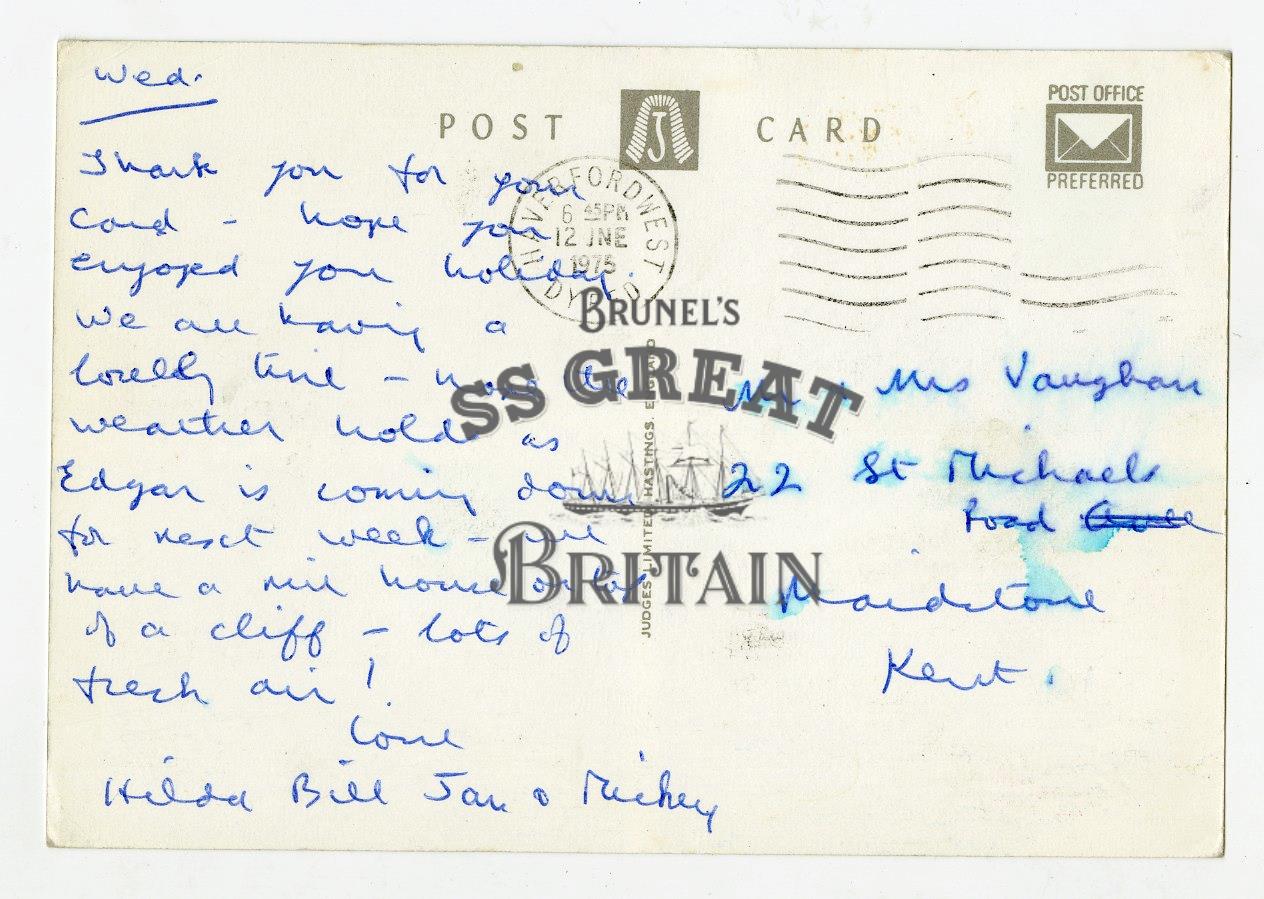 Wed.
Thank you for your
card - hope you
enjoyed your holiday.
We are having a
lovely time - hope the
weather holds as
Edgar is coming down
for next week - we
have a nice house on top
of a cliff - lots of
fresh air!
Love
Hilda Bill Jan & Mickey
POST CARD
J
POST OFFICE
PREFERRED
HAVERFORDWEST
6 45PM
12 JNE
1975
DYFED
BRUNEL'S
SS GREAT
BRITAIN
JUDGES LIMITED, HASTINGS, ENGLAND
Mr & Mrs Vaughan
22 St Michaels
Road
Maidstone
Kent.